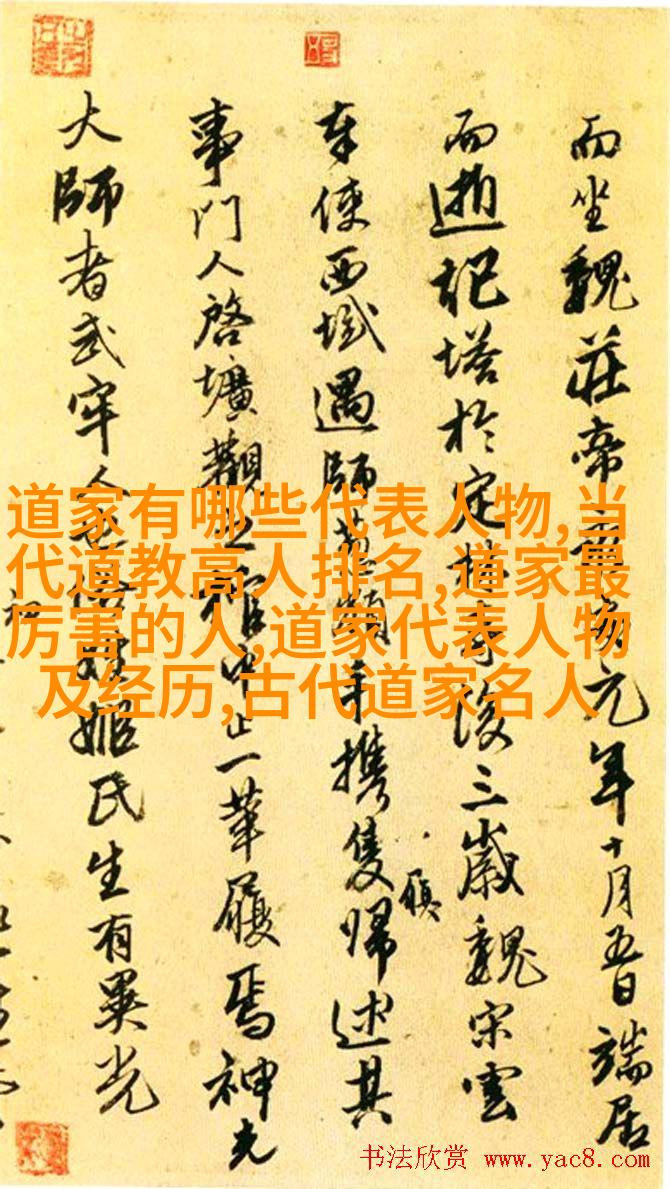 而坐魏莊帝永安元年十月五日端居
而逝記塔於定林寺後三歲魏宋雲
奉使西域遇師葱嶺手攜隻歸述其
履
事門人啓壙觀之棺中止一革履焉神光
大師者武牢人也俗姓姬氏生有異光
道家有哪些代表人物,当
代道教高人排名,道家最
厉害的人,道家代表人物
及经历,古代道家名人
书法欣赏 www.yac8.com